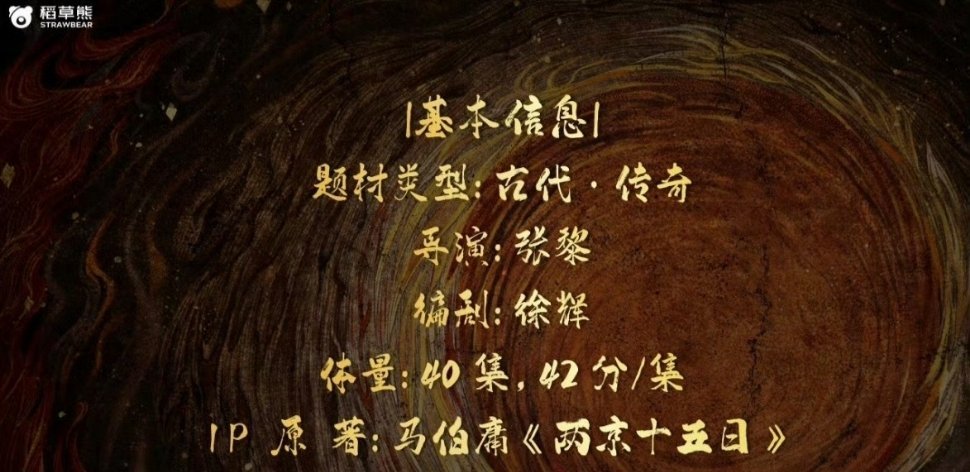 稻草熊
STRAWBEAR
|基本信息|
题材类型：古代·传奇
导演：张黎
编剧：徐辉
体量：40集，42分/集
IP原著：马伯庸《两京十五日》